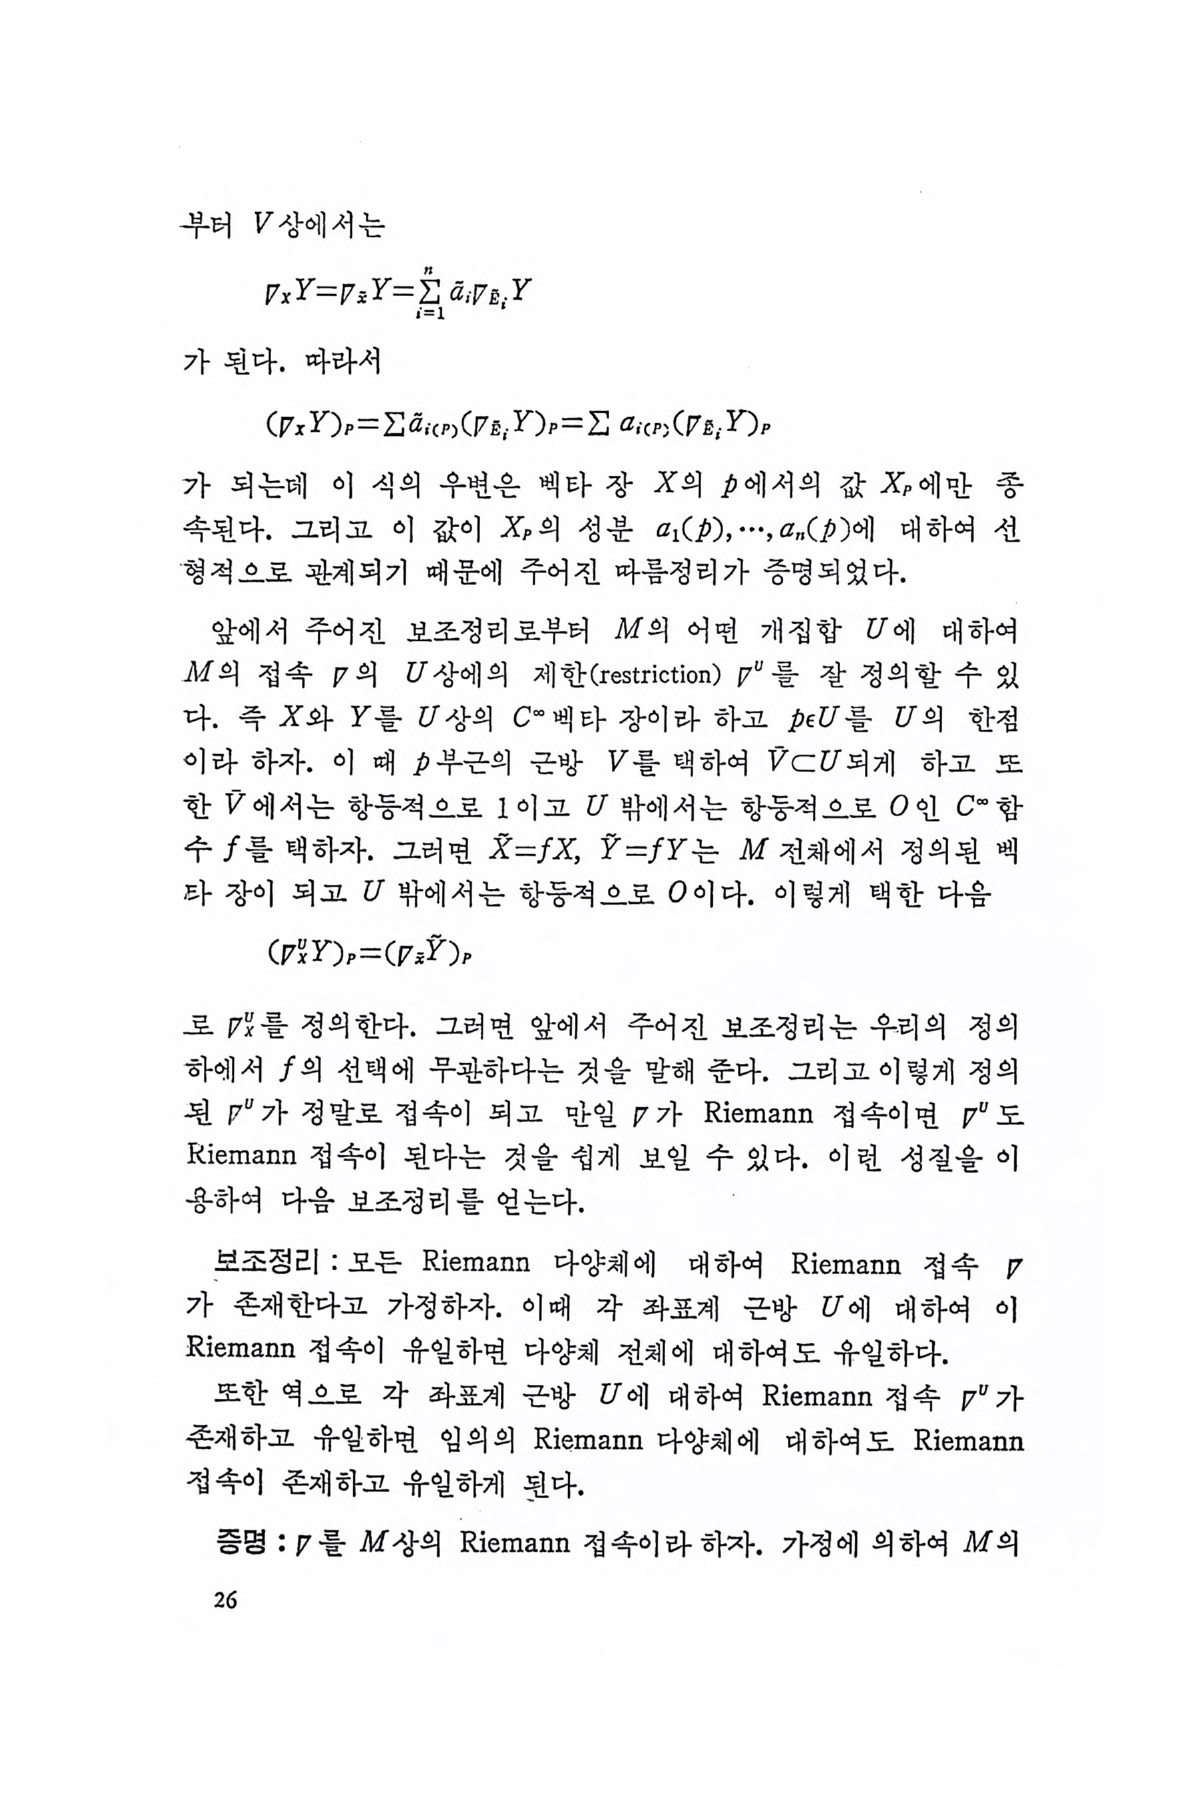 부터 V상에서는
∇_X Y=∇_X̃ Y=∑_{i=1}^{n} ã_i∇_{Ẽ_i}Y
가 된다. 따라서
(∇_X Y)_P=∑ã_{i(P)}(∇_{Ẽ_i}Y)_P=∑ a_{i(P)}(∇_{Ẽ_i}Y)_P
가 되는데 이 식의 우변은 벡타 장 X의 p에서의 값 X_P에만 종
속된다. 그리고 이 값이 X_P의 성분 a₁(p),…,a_n(p)에 대하여 선
형적으로 관계되기 때문에 주어진 따름정리가 증명되었다.
앞에서 주어진 보조정리로부터 M의 어떤 개집합 U에 대하여
M의 접속 ∇의 U상에의 제한(restriction) ∇^U를 잘 정의할 수 있
다. 즉 X와 Y를 U상의 C^∞벡타 장이라 하고 pϵU를 U의 한점
이라 하자. 이 때 p부근의 근방 V를 택하여 V̄⊂U되게 하고 또
한 V̄에서는 항등적으로 1이고 U 밖에서는 항등적으로 O인 C^∞함
수 f를 택하자. 그러면 X̃=fX, Ỹ=fY는 M 전체에서 정의된 벡
타 장이 되고 U 밖에서는 항등적으로 O이다. 이렇게 택한 다음
(∇^U_X Y)_P=(∇_X̃ Ỹ)_P
로 ∇^U_X를 정의한다. 그러면 앞에서 주어진 보조정리는 우리의 정의
하에서 f의 선택에 무관하다는 것을 말해 준다. 그리고 이렇게 정의
된 ∇^U가 정말로 접속이 되고 만일 ∇가 Riemann 접속이면 ∇^U도
Riemann 접속이 된다는 것을 쉽게 보일 수 있다. 이런 성질을 이
용하여 다음 보조정리를 얻는다.
보조정리 : 모든 Riemann 다양체에 대하여 Riemann 접속 ∇
가 존재한다고 가정하자. 이때 각 좌표계 근방 U에 대하여 이
Riemann 접속이 유일하면 다양체 전체에 대하여도 유일하다.
또한 역으로 각 좌표계 근방 U에 대하여 Riemann 접속 ∇^U가
존재하고 유일하면 임의의 Riemann 다양체에 대하여도 Riemann
접속이 존재하고 유일하게 된다.
증명 : ∇를 M상의 Riemann 접속이라 하자. 가정에 의하여 M의
26